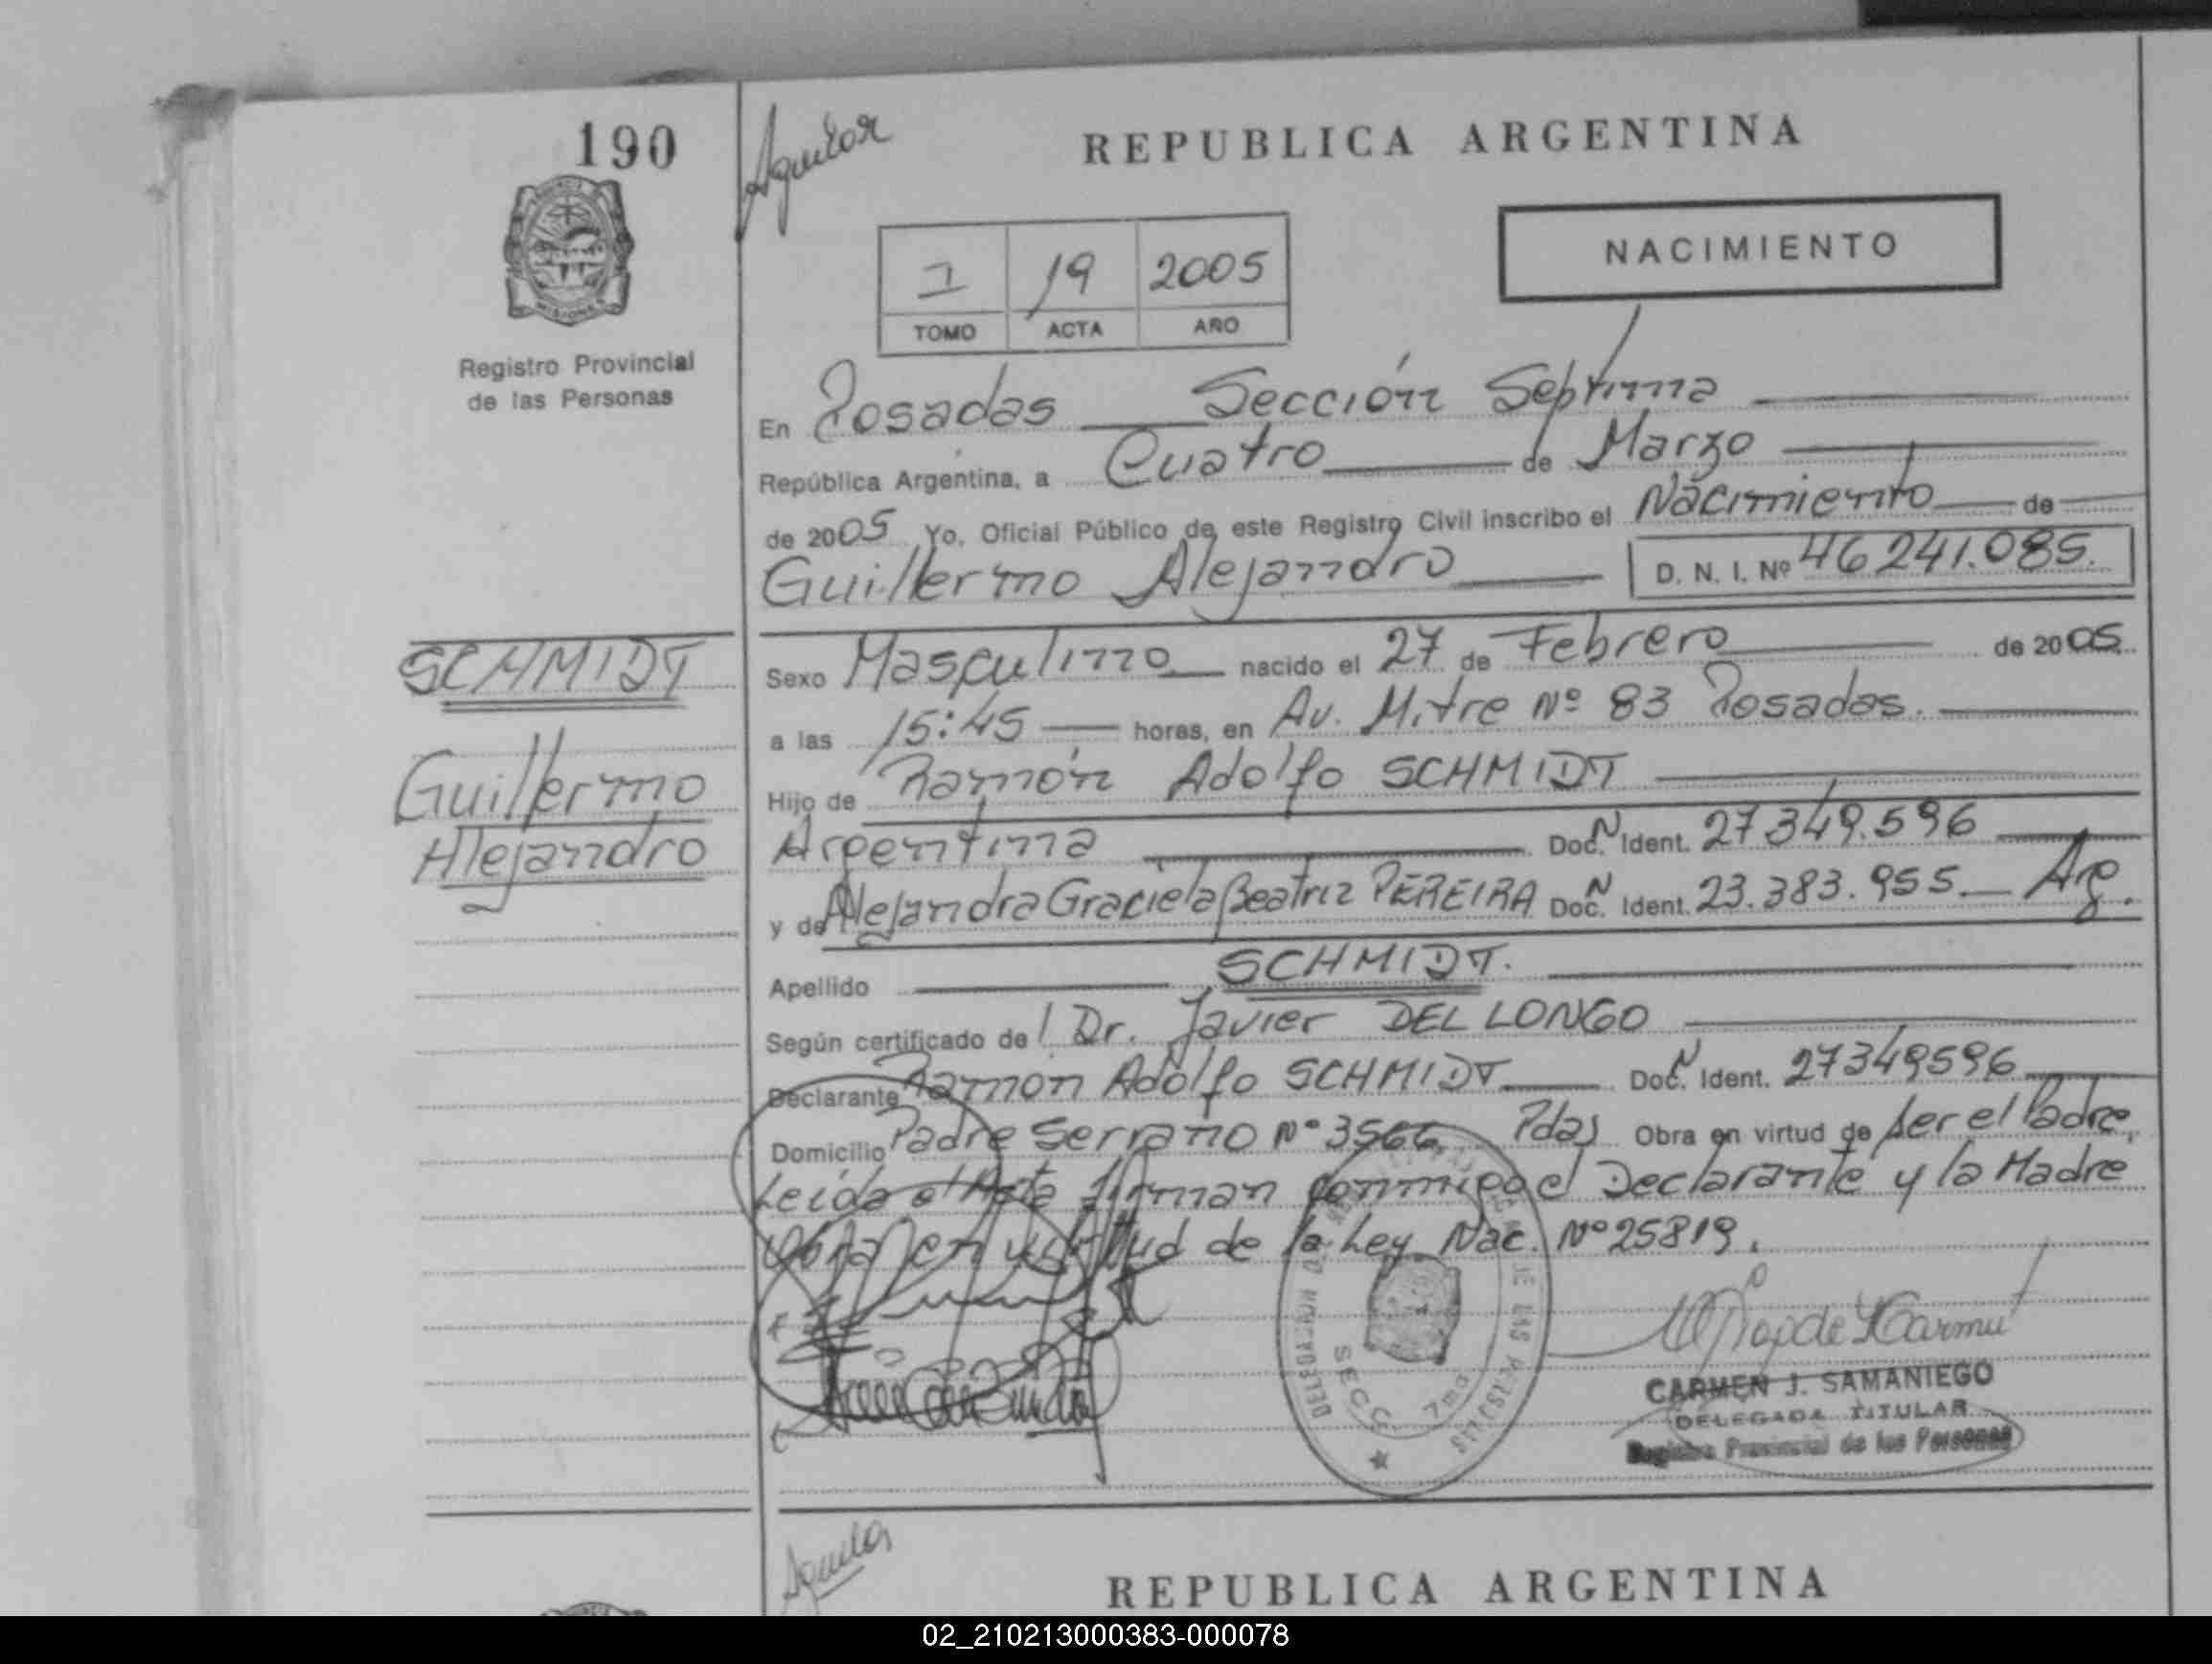 190
Aguilar
REPUBLICA ARGENTINA
NACIMIENTO
I 19 2005
TOMO ACTA AÑO
Registro Provincial
de las Personas
En Posadas Sección Septima
República Argentina, a Cuatro de Marzo
de 2005 Yo, Oficial Público de este Registro Civil inscribo el Nacimiento de
Guillermo Alejandro D. N. I. Nº 46241.085.
SCHMIDT
Guillermo
Alejandro
Sexo Masculino nacido el 27 de Febrero de 2005.
a las 15:45 horas, en Av. Mitre Nº 83 Posadas.
Hijo de Ramón Adolfo SCHMIDT
Argentina Doc. N Ident. 27349.596
y de Alejandra Graciela Beatriz PEREIRA Doc. N Ident. 23.383.955 Arg.
Apellido SCHMIDT.
Según certificado de l Dr. Javier DEL LONGO
Declarante Ramon Adolfo SCHMIDT Doc. N Ident. 27349596
Domicilio Padre Serrano Nº 3566 Pdas Obra en virtud de ser el Padre,
Leida el Acta firman conmigo el Declarante y la Madre
Obran en virtud de la Ley Nac. Nº 25819.
SECC. 7ma
CARMEN J. SAMANIEGO
DELEGADA TITULAR
Registro Provincial de las Personas
Aguilar
REPUBLICA ARGENTINA
02_210213000383-000078